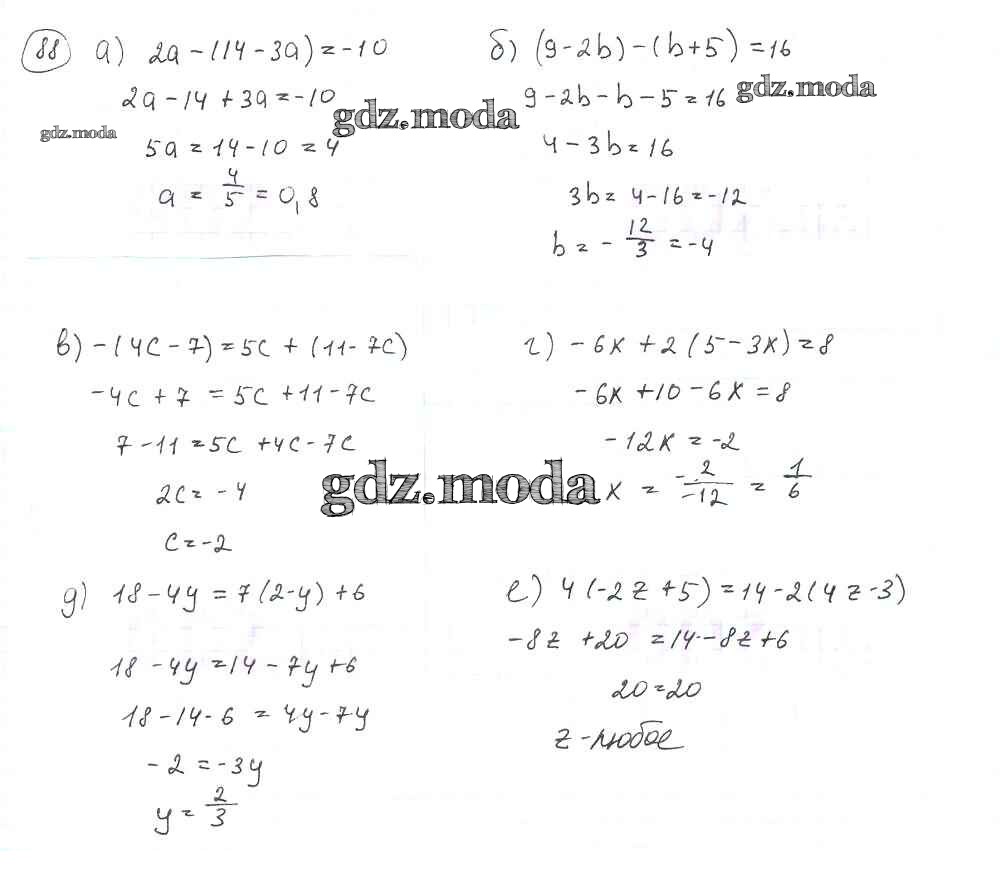 88 а) 2a - (14 - 3a) = -10
2a - 14 + 3a = -10
5a = 14 - 10 = 4
a = 4/5 = 0,8
б) (9 - 2b) - (b + 5) = 16
9 - 2b - b - 5 = 16
4 - 3b = 16
3b = 4 - 16 = -12
b = - 12/3 = -4
gdz.moda
gdz.moda
gdz.moda
в) -(4c - 7) = 5c + (11 - 7c)
-4c + 7 = 5c + 11 - 7c
7 - 11 = 5c + 4c - 7c
2c = -4
c = -2
г) -6x + 2(5 - 3x) = 8
-6x + 10 - 6x = 8
-12x = -2
x = -2/-12 = 1/6
gdz.moda
д) 18 - 4y = 7(2 - y) + 6
18 - 4y = 14 - 7y + 6
18 - 14 - 6 = 4y - 7y
-2 = -3y
y = 2/3
е) 4(-2z + 5) = 14 - 2(4z - 3)
-8z + 20 = 14 - 8z + 6
20 = 20
z - любое